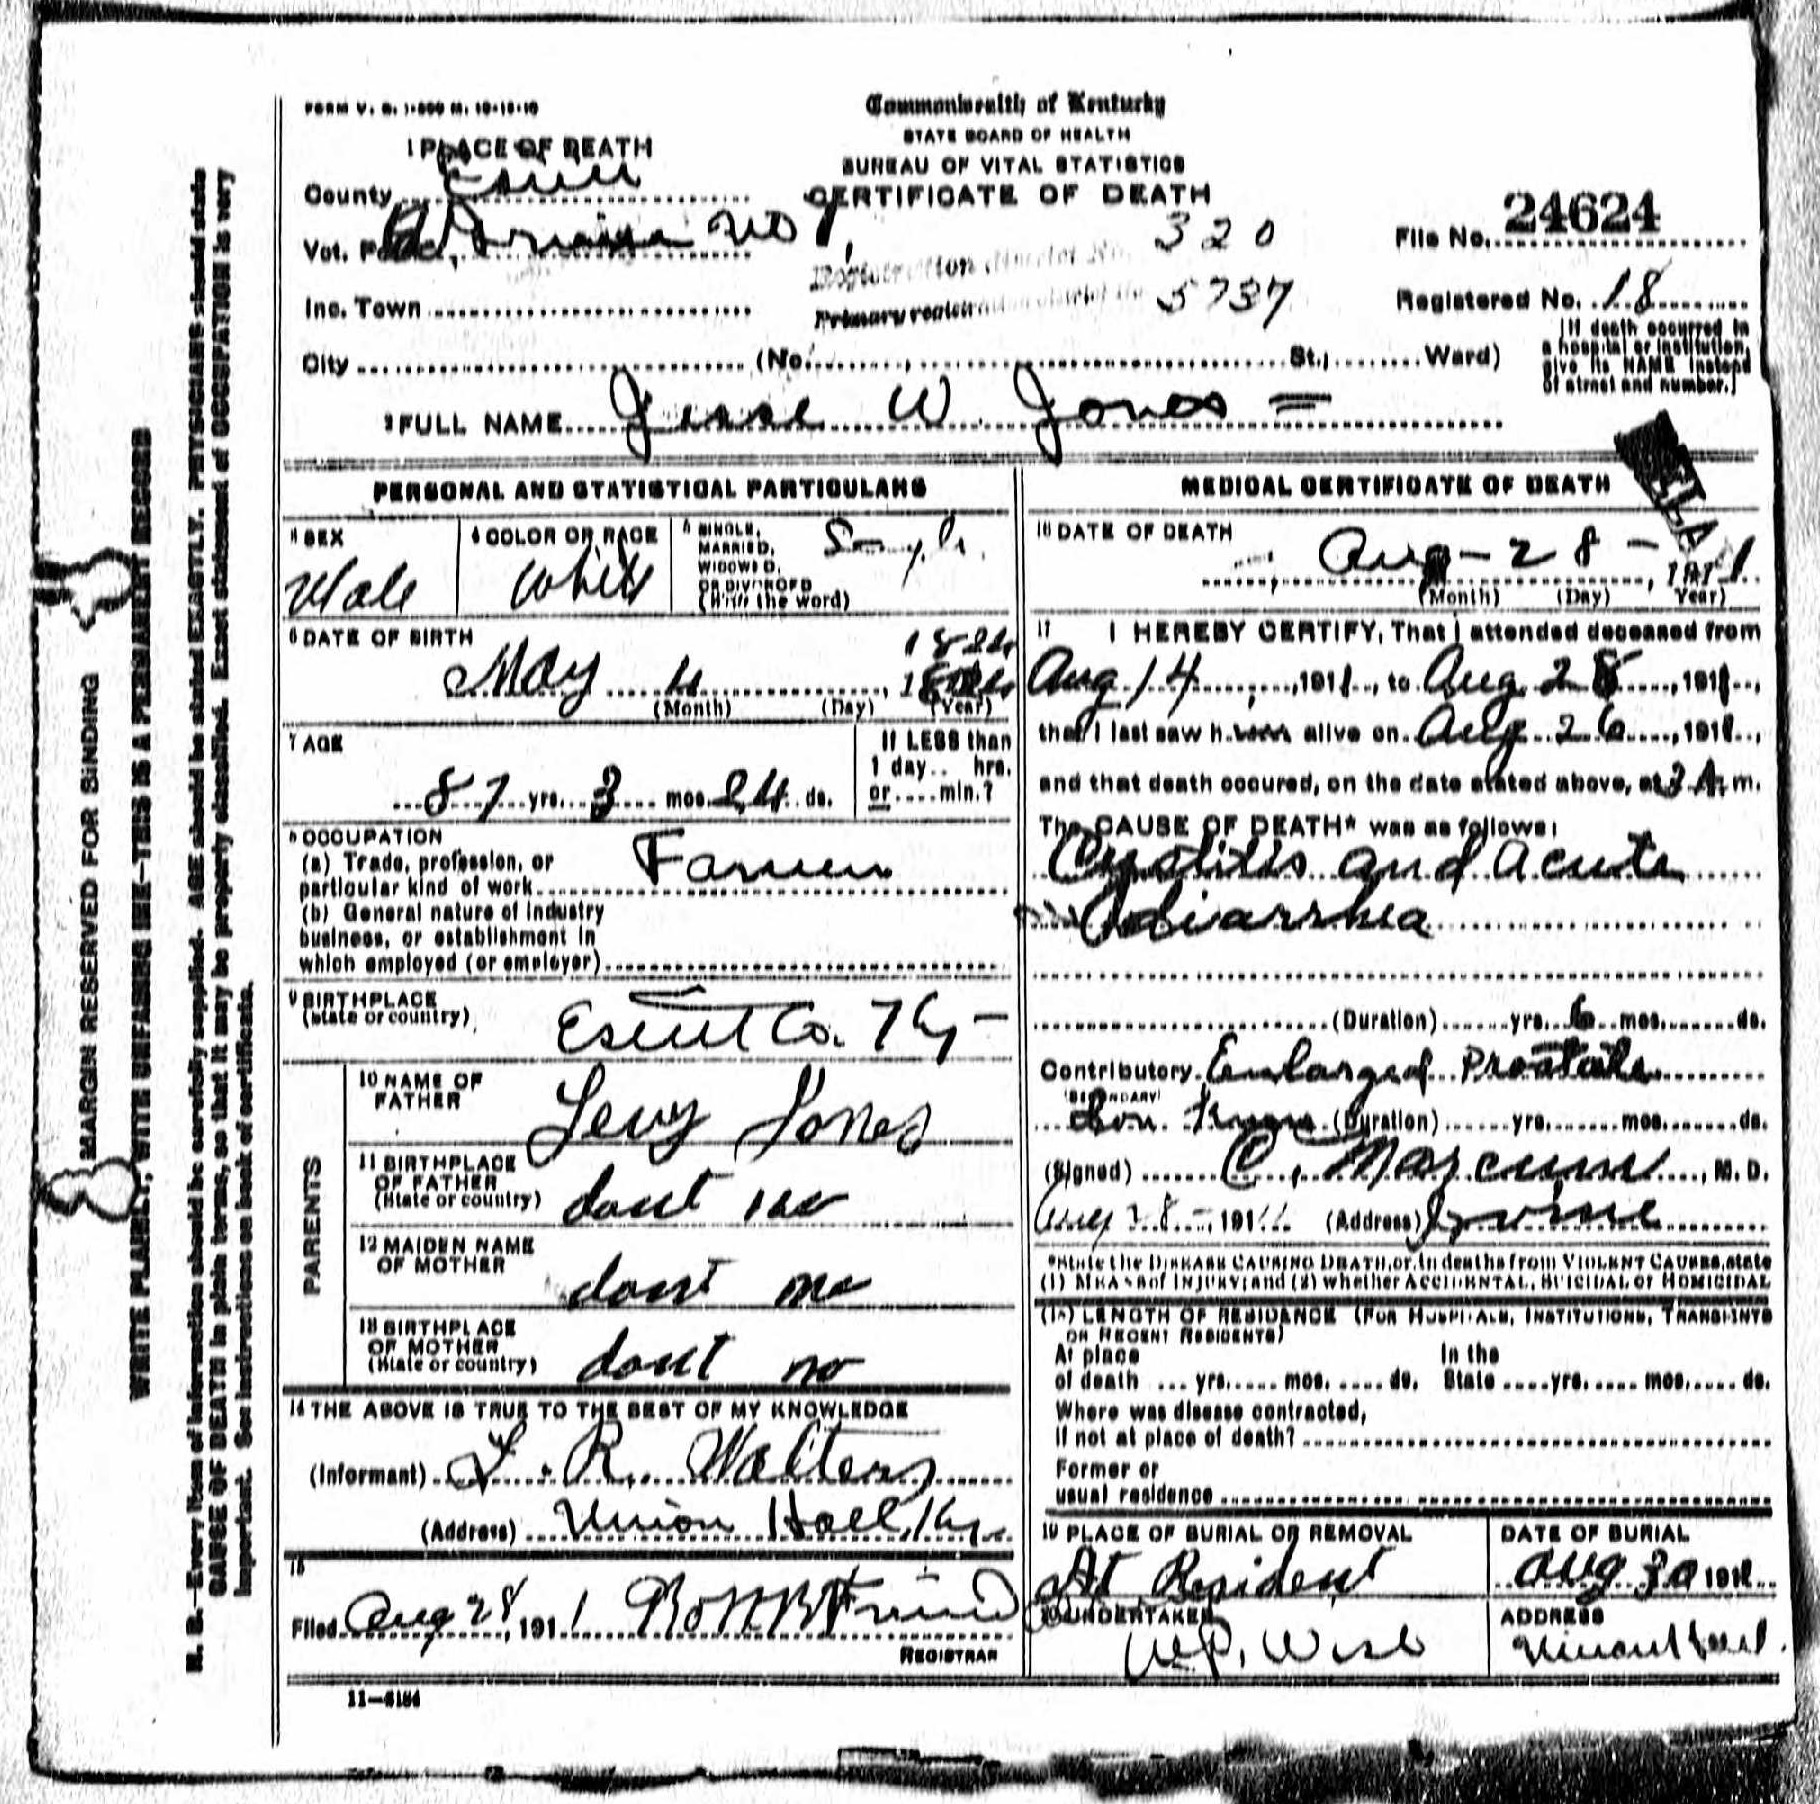 FORM V. S. 1-500 M. 10-18-10
Commonwealth of Kentucky
STATE BOARD OF HEALTH
BUREAU OF VITAL STATISTICS
CERTIFICATE OF DEATH
1 PLACE OF DEATH
County Estill
Vot. Pct. Irvine No 1,
Inc. Town
City (No. , St., Ward)
Registration District No. 320
Primary registration district No 5737
File No. 24624
Registered No. 18
[If death occurred in
a hospital or institution,
give its NAME instead
of street and number.]
2 FULL NAME Jesse W. Jones =
PERSONAL AND STATISTICAL PARTICULARS
3 SEX
Male
4 COLOR OR RACE
White
5 SINGLE,
MARRIED,
WIDOWED,
OR DIVORCED
(Write the word)
Single
6 DATE OF BIRTH
1824
May 4, 18
(Month) (Day) (Year)
7 AGE
87 yrs. 3 mos. 24 ds.
If LESS than
1 day .. hrs.
or .... min.?
8 OCCUPATION
(a) Trade, profession, or
particular kind of work Farmer
(b) General nature of industry
business, or establishment in
which employed (or employer)
9 BIRTHPLACE
(state or country)
Estill Co. Ky -
PARENTS
10 NAME OF
FATHER
Levy Jones
11 BIRTHPLACE
OF FATHER
(State or country)
dont no
12 MAIDEN NAME
OF MOTHER
dont no
13 BIRTHPLACE
OF MOTHER
(State or country)
dont no
14 THE ABOVE IS TRUE TO THE BEST OF MY KNOWLEDGE
(Informant) L. R. Walters
(Address) Union Hall, Ky.
15
Filed Aug 28, 1911
REGISTRAR
11-6184
MEDICAL CERTIFICATE OF DEATH
16 DATE OF DEATH
Aug - 28 - , 1911
(Month) (Day) Year)
17 I HEREBY CERTIFY, That I attended deceased from
Aug 14, 1911, to Aug 28, 1911,
that I last saw him alive on Aug 26, 1911,
and that death occured, on the date stated above, at 3 A. m.
The CAUSE OF DEATH* was as follows:
Cystitis and Acute
diarrhea
(Duration) yrs. 6 mos. ds.
Contributory Enlarged Prostate
SECONDARY
(Duration) yrs. mos. ds.
(Signed) C. Marcum, M. D.
Aug 28 -, 1911 (Address) Irvine
*State the DISEASE CAUSING DEATH, or, in deaths from VIOLENT CAUSES, state
(1) MEANS of INJURY; and (2) whether ACCIDENTAL, SUICIDAL or HOMICIDAL
(18) LENGTH OF RESIDENCE (FOR HOSPITALS, INSTITUTIONS, TRANSIENTS
OR RECENT RESIDENTS)
At place In the
of death ... yrs. .... mos. .... ds. State .... yrs. .... mos. .... ds.
Where was disease contracted,
if not at place of death?
Former or
usual residence
19 PLACE OF BURIAL OR REMOVAL
At Resident
DATE OF BURIAL
Aug 30 1911
20 UNDERTAKER
W.P. Wise
ADDRESS
Union Hall.
MARGIN RESERVED FOR BINDING
WRITE PLAINLY, WITH UNFADING INK—THIS IS A PERMANENT RECORD
N. B.—Every item of information should be carefully supplied. AGE should be stated EXACTLY. PHYSICIANS should state
CAUSE OF DEATH in plain terms, so that it may be properly classified. Exact statement of OCCUPATION is very
important. See instructions on back of certificate.